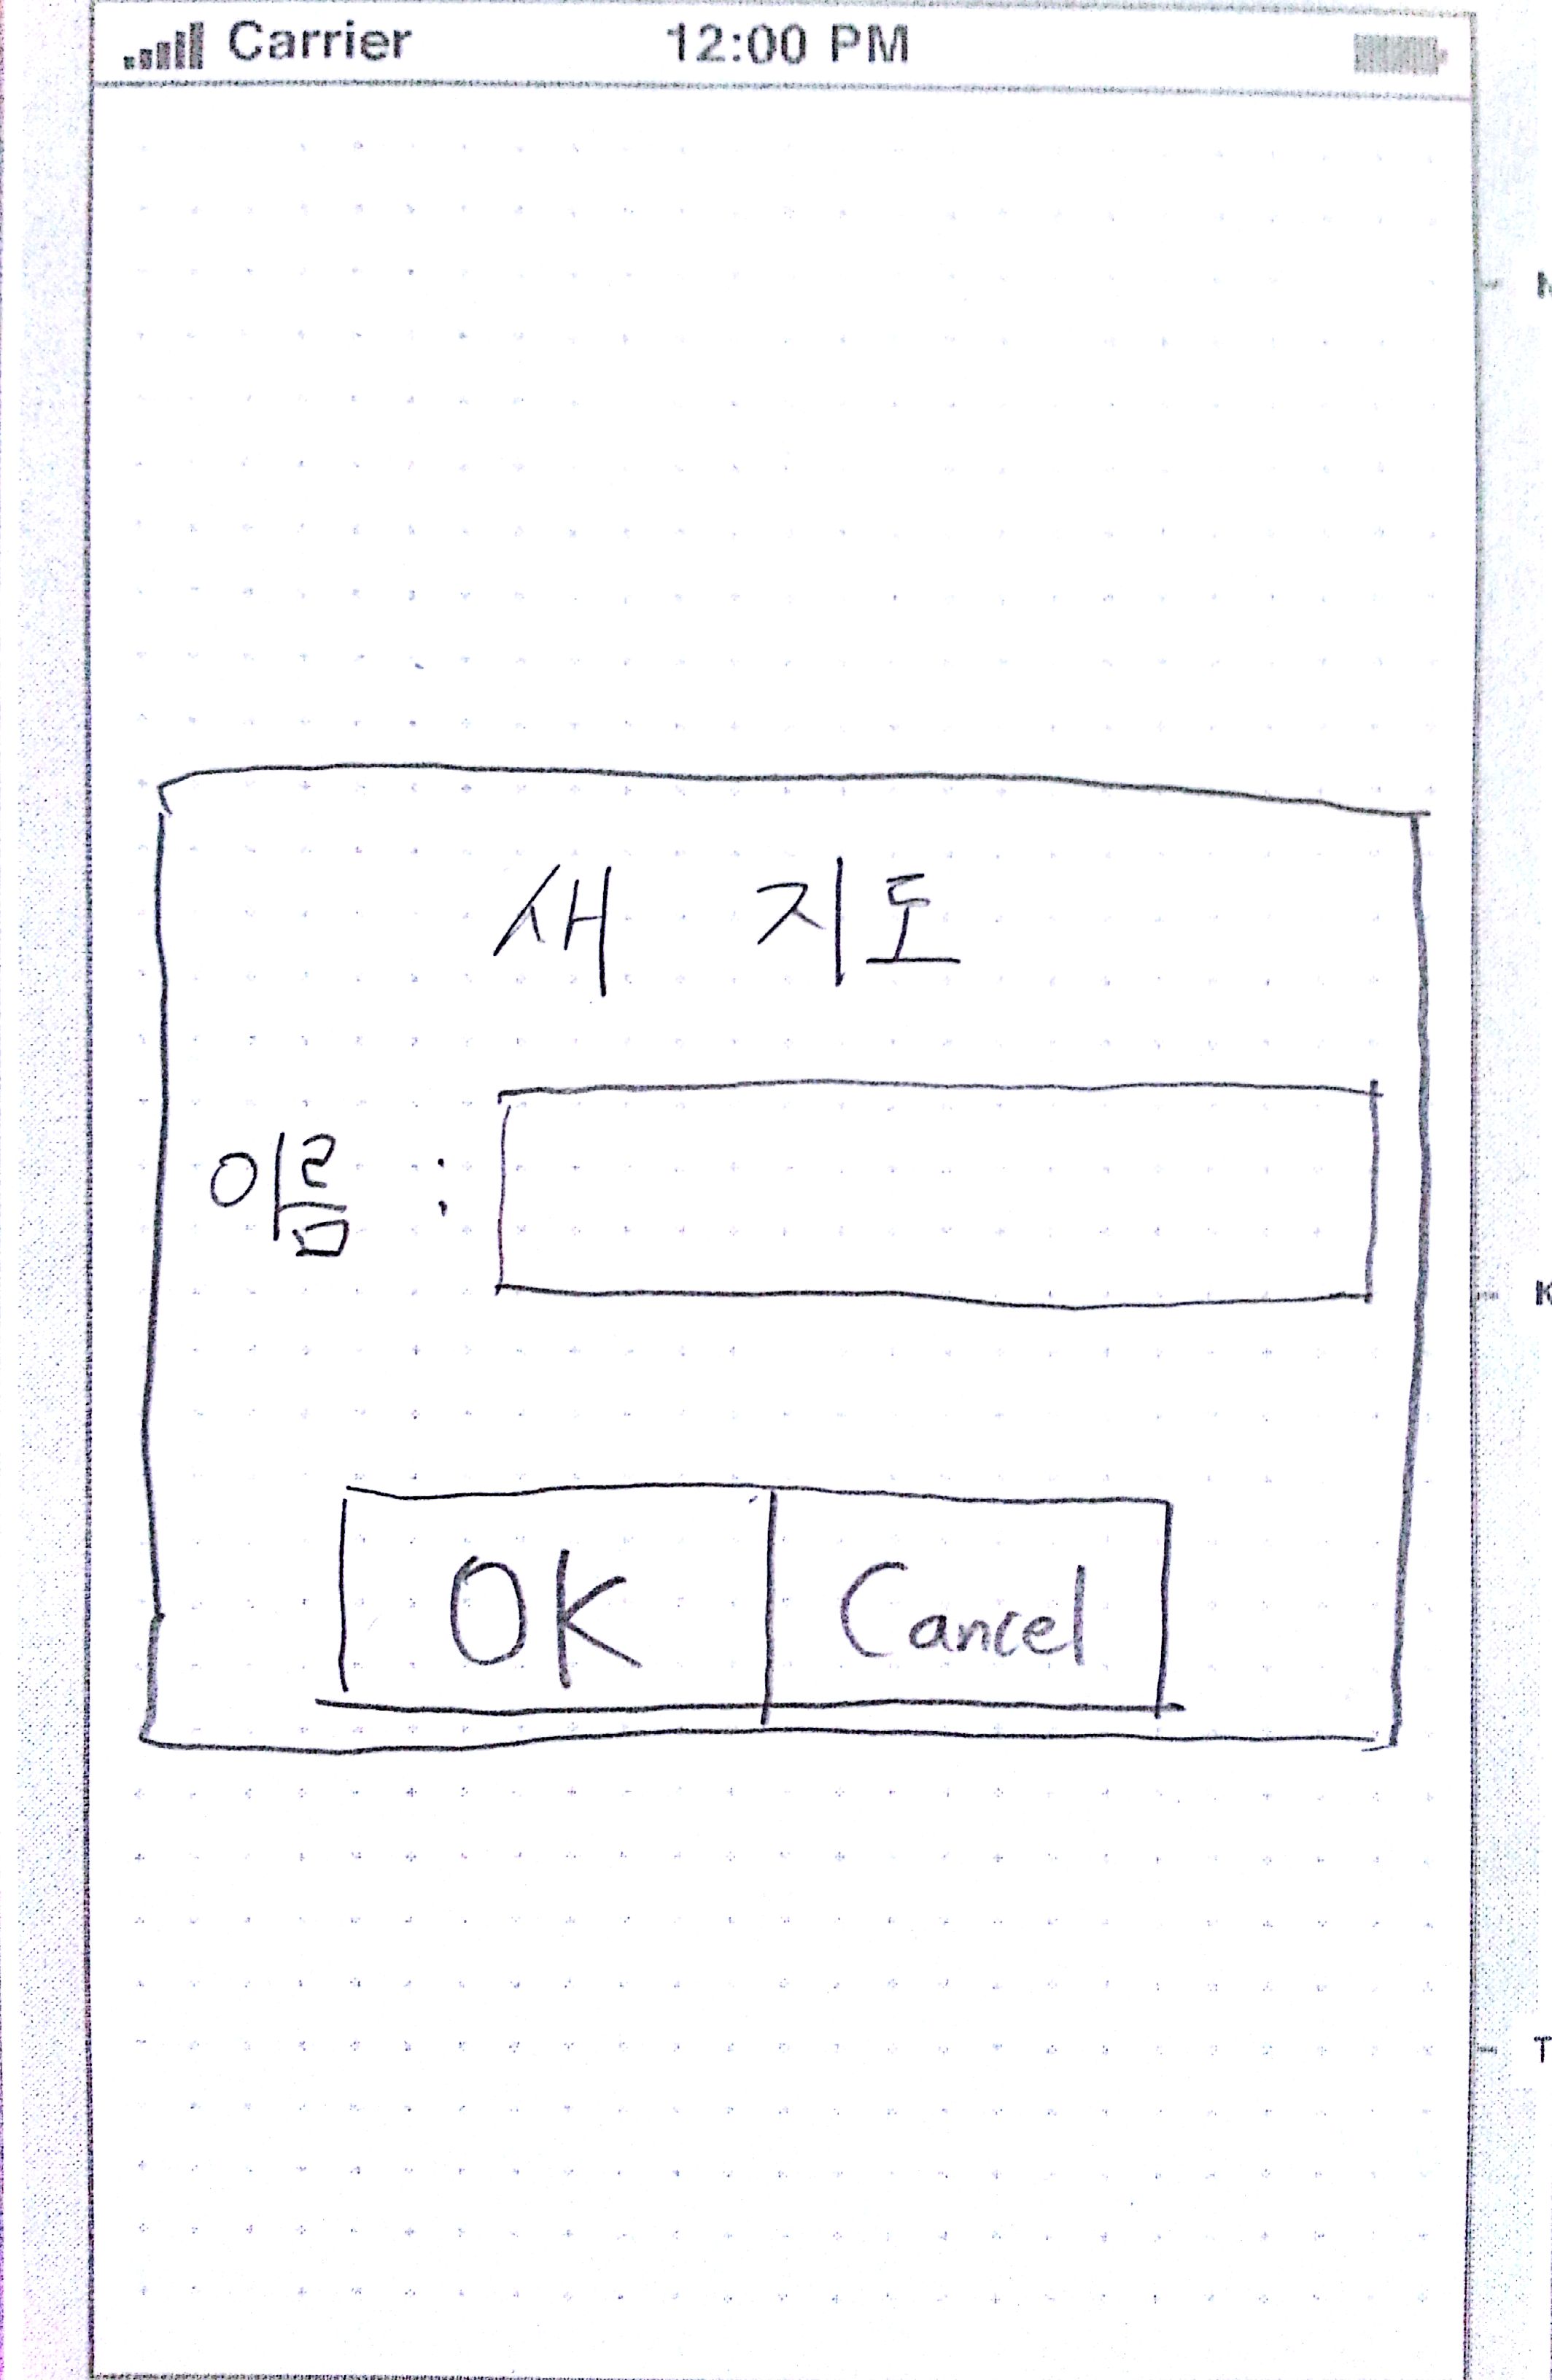 Carrier 12:00 PM
새 지도
이름 :
OK Cancel